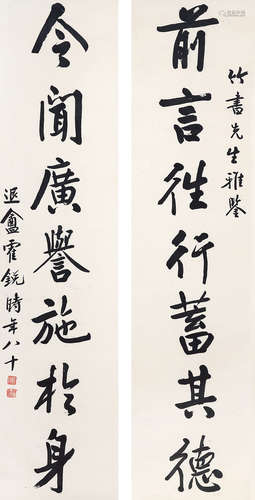 前言往行蓄其德
竹書先生雅鑒
令聞廣譽施於身
退盦霍銳時年八十